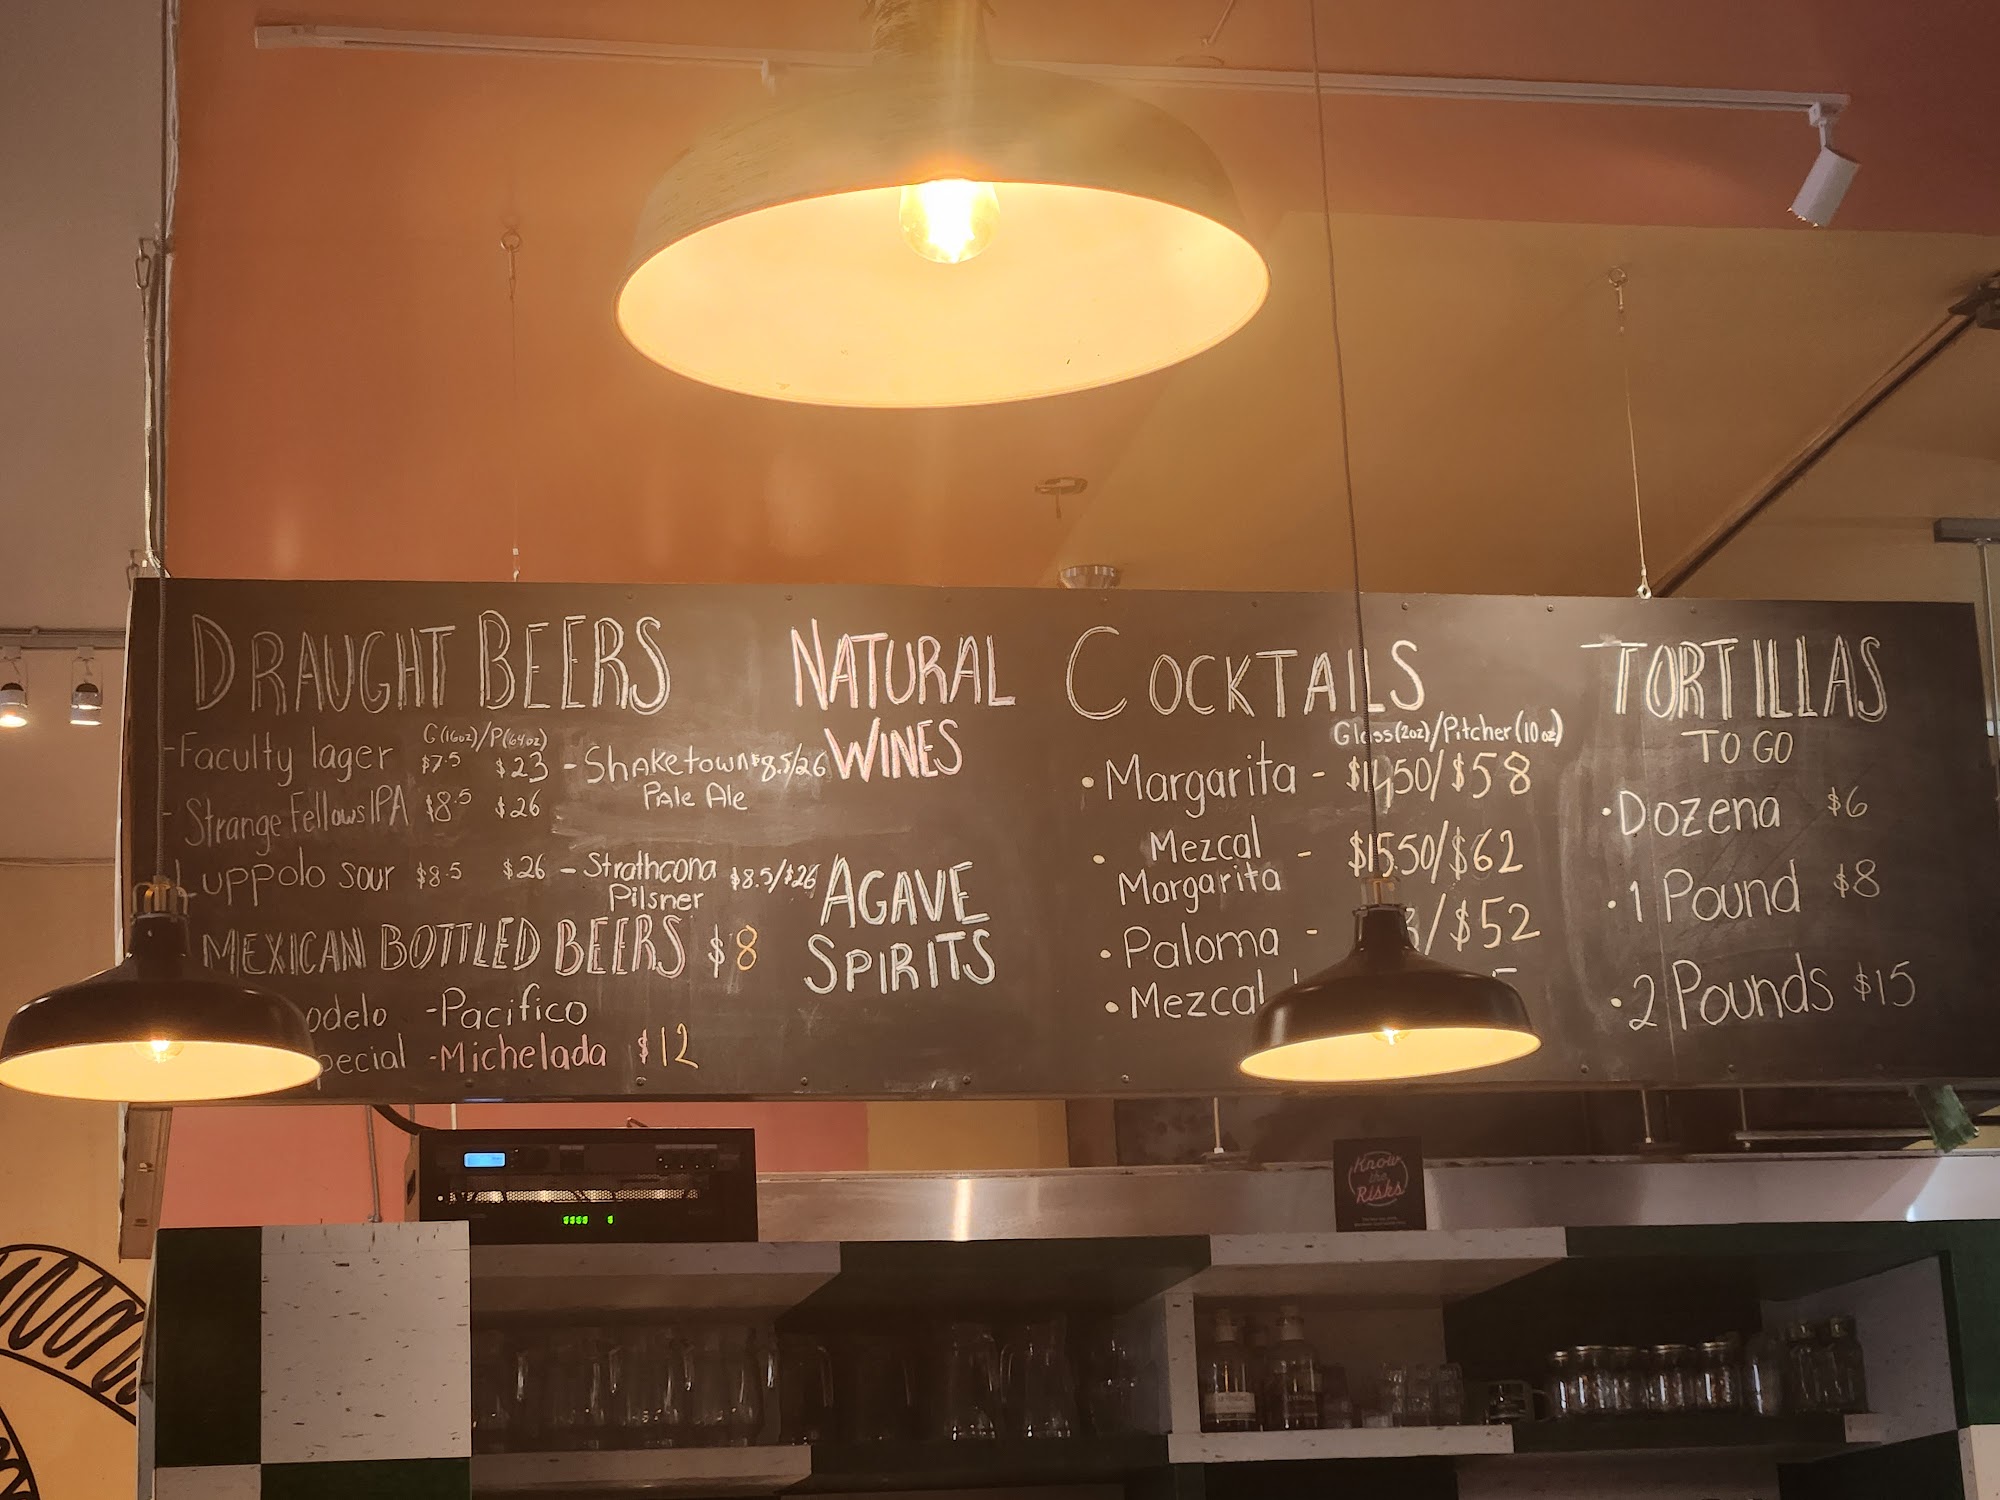 DRAUGHT BEERS
G(16oz)/P(64oz)
-Faculty lager $7.5 $23
- Strange Fellows IPA $8.5 $26
Luppolo sour $8.5 $26
- Shaketown $8.5/26
Pale Ale
- Strathcona $8.5/$26
Pilsner
MEXICAN BOTTLED BEERS $8
odelo -Pacifico
pecial -Michelada $12
NATURAL
WINES
AGAVE
SPIRITS
COCKTAILS
Glass(2oz)/Pitcher(10oz)
• Margarita - $14,50/$58
• Mezcal - $15.50/$62
Margarita
• Paloma - /$52
• Mezcal
TORTILLAS
TO GO
• Dozena $6
• 1 Pound $8
• 2 Pounds $15
Know
the
Risks